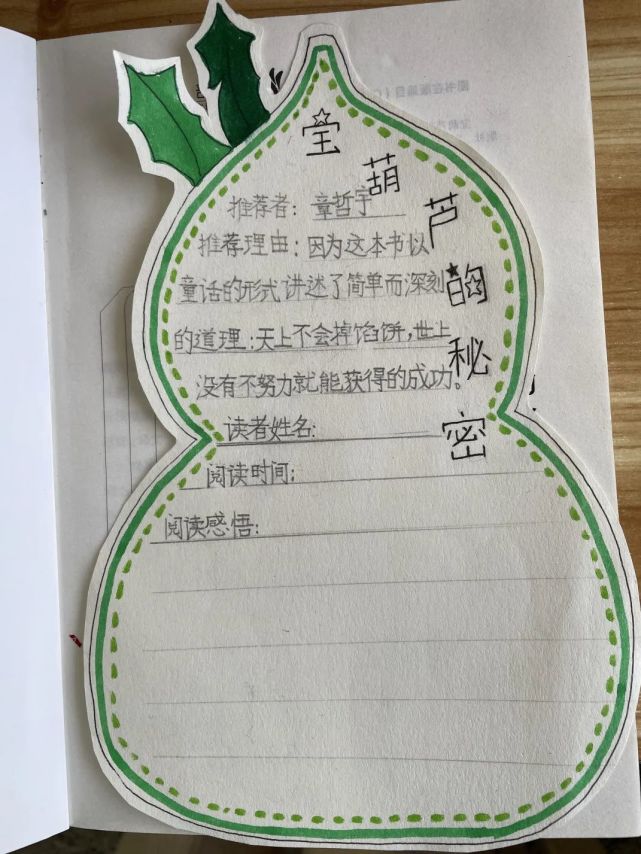 宝葫芦的秘密
推荐者：章哲宇
推荐理由：因为这本书以
童话的形式讲述了简单而深刻
的道理：天上不会掉馅饼，世上
没有不努力就能获得的成功。
读者姓名：
阅读时间：
阅读感悟：